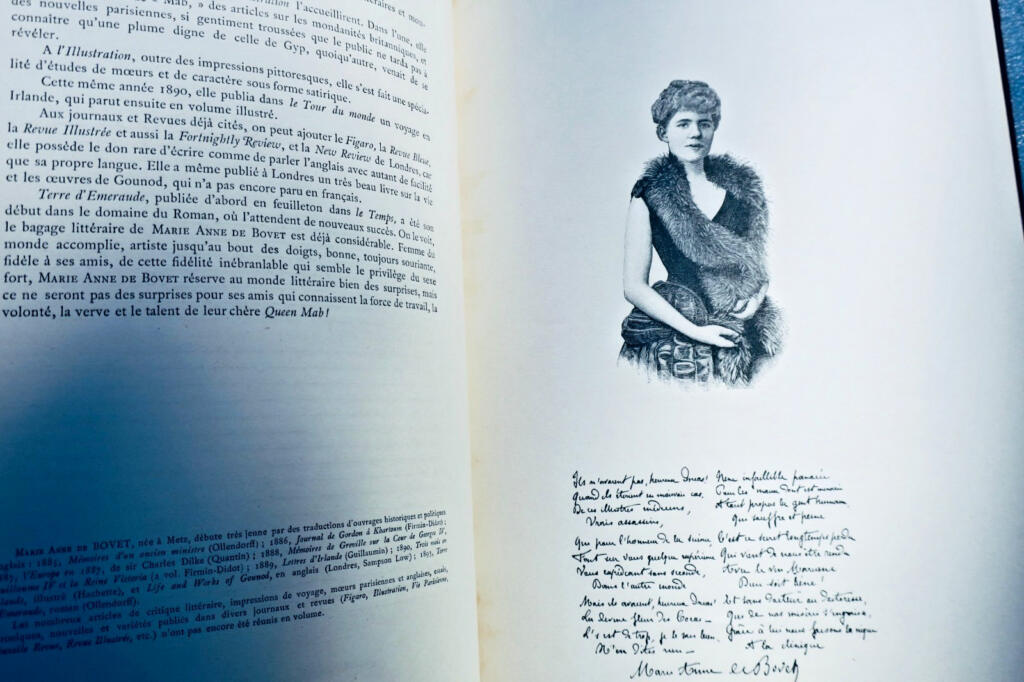 l'Illustration l'accueillirent. Dans l'une, elle
Mab, » des articles sur les mondanités britanniques, et
des nouvelles parisiennes, si gentiment troussées que le public ne tarda pas à
connaître qu'une plume digne de celle de Gyp, quoiqu'autre, venait de se
révéler.
A l'Illustration, outre des impressions pittoresques, elle s'est fait une spécia-
lité d'études de mœurs et de caractère sous forme satirique.
Cette même année 1890, elle publia dans le Tour du monde un voyage en
Irlande, qui parut ensuite en volume illustré.
Aux journaux et Revues déjà cités, on peut ajouter le Figaro, la Revue Bleue,
la Revue Illustrée et aussi la Fortnightly Review, et la New Review de Londres, car
elle possède le don rare d'écrire comme de parler l'anglais avec autant de facilité
que sa propre langue. Elle a même publié à Londres un très beau livre sur la vie
et les œuvres de Gounod, qui n'a pas encore paru en français.
Terre d'Emeraude, publiée d'abord en feuilleton dans le Temps, a été son
début dans le domaine du Roman, où l'attendent de nouveaux succès. On le voit,
le bagage littéraire de MARIE ANNE DE BOVET est déjà considérable. Femme du
monde accomplie, artiste jusqu'au bout des doigts, bonne, toujours souriante,
fidèle à ses amis, de cette fidélité inébranlable qui semble le privilège du sexe
fort, MARIE ANNE DE BOVET réserve au monde littéraire bien des surprises, mais
ce ne seront pas des surprises pour ses amis qui connaissent la force de travail, la
volonté, la verve et le talent de leur chère Queen Mab!
MARIE ANNE DE BOVET, née à Metz, débute très jeune par des traductions d'ouvrages historiques et politiques
anglais : 1885, Mémoires d'un ancien ministre (Ollendorff) ; 1886, Journal de Gordon à Khartoum (Firmin-Didot) ;
1887, l'Europe en 1887, de sir Charles Dilke (Quantin) ; 1888, Mémoires de Greville sur la Cour de George IV,
Guillaume IV et la Reine Victoria (2 vol. Firmin-Didot) ; 1889, Lettres d'Irlande (Guillaumin) ; 1890, Trois mois en
Irlande, illustré (Hachette), et Life and Works of Gounod, en anglais (Londres, Sampson Low) ; Terre
d'Emeraude, roman (Ollendorff).
Les nombreux articles de critique littéraire, impressions de voyage, mœurs parisiennes et anglaises, essais,
chroniques, nouvelles et variétés publiés dans divers journaux et revues (Figaro, Illustration, Vie Parisienne,
Nouvelle Revue, Revue Illustrée, etc.) n'ont pas encore été réunis en volume.
Ils n'avaient pas, heureux Incas!
Quand ils étaient en mauvais cas,
De ces illustres médecins,
Vrais assassins,
Qui pour l'homme de la
Font sur vous quelque expérience
Vous expédiant sans
Dans l'autre monde
Mais ils avaient, heureux Incas!
La divine fleur des Cocas —
C'est de trop, je le sais bien,
N'en dites rien —
Name infaillible panacée
Pour les maux dont est
A tout propos la gent humaine
Qui souffre et peine
C'est ce divin
Qui vient de nous être rendu
Avec le vin Mariani
Bien soit béni!
Et sans Docteur ou Doctoresse,
Qui de nos misères s'engraisse,
Grâce à lui nous faisons la nique
A la clinique
Marie Anne de Bovet